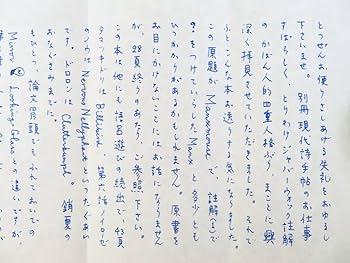 とつぜんお便りさしあげる失礼をおゆるし
下さいませ 別冊現代詩手帖のお仕事
すばらしく、とりわけジャバーウォック註解
のかばん人的四重人格ぶり、まことに興
深く拝見させていただきました。それで
ふとこんな本お送りする気になりました。
この原題が Manxmouse で、註解(1)で
?をつけていらしたManxと多少とも
ひっかかりがあるかもしれません。原書を
お目にかけないことにはお話になりません
が、28頁終りのあたり、ご参照下さい。
この本は他にも語呂遊びの続出で、43頁
タカツキドリは Billibird 第六話ノイローゼ
ゾウは Nervous Nellyphant といったぐあい
です。ドロロンは Clutterbumph。 銷夏の
おなぐさみまでに。
もひとつ、論文冒頭でもふれておいでの
Mirror と Looking Glass との違いですが、